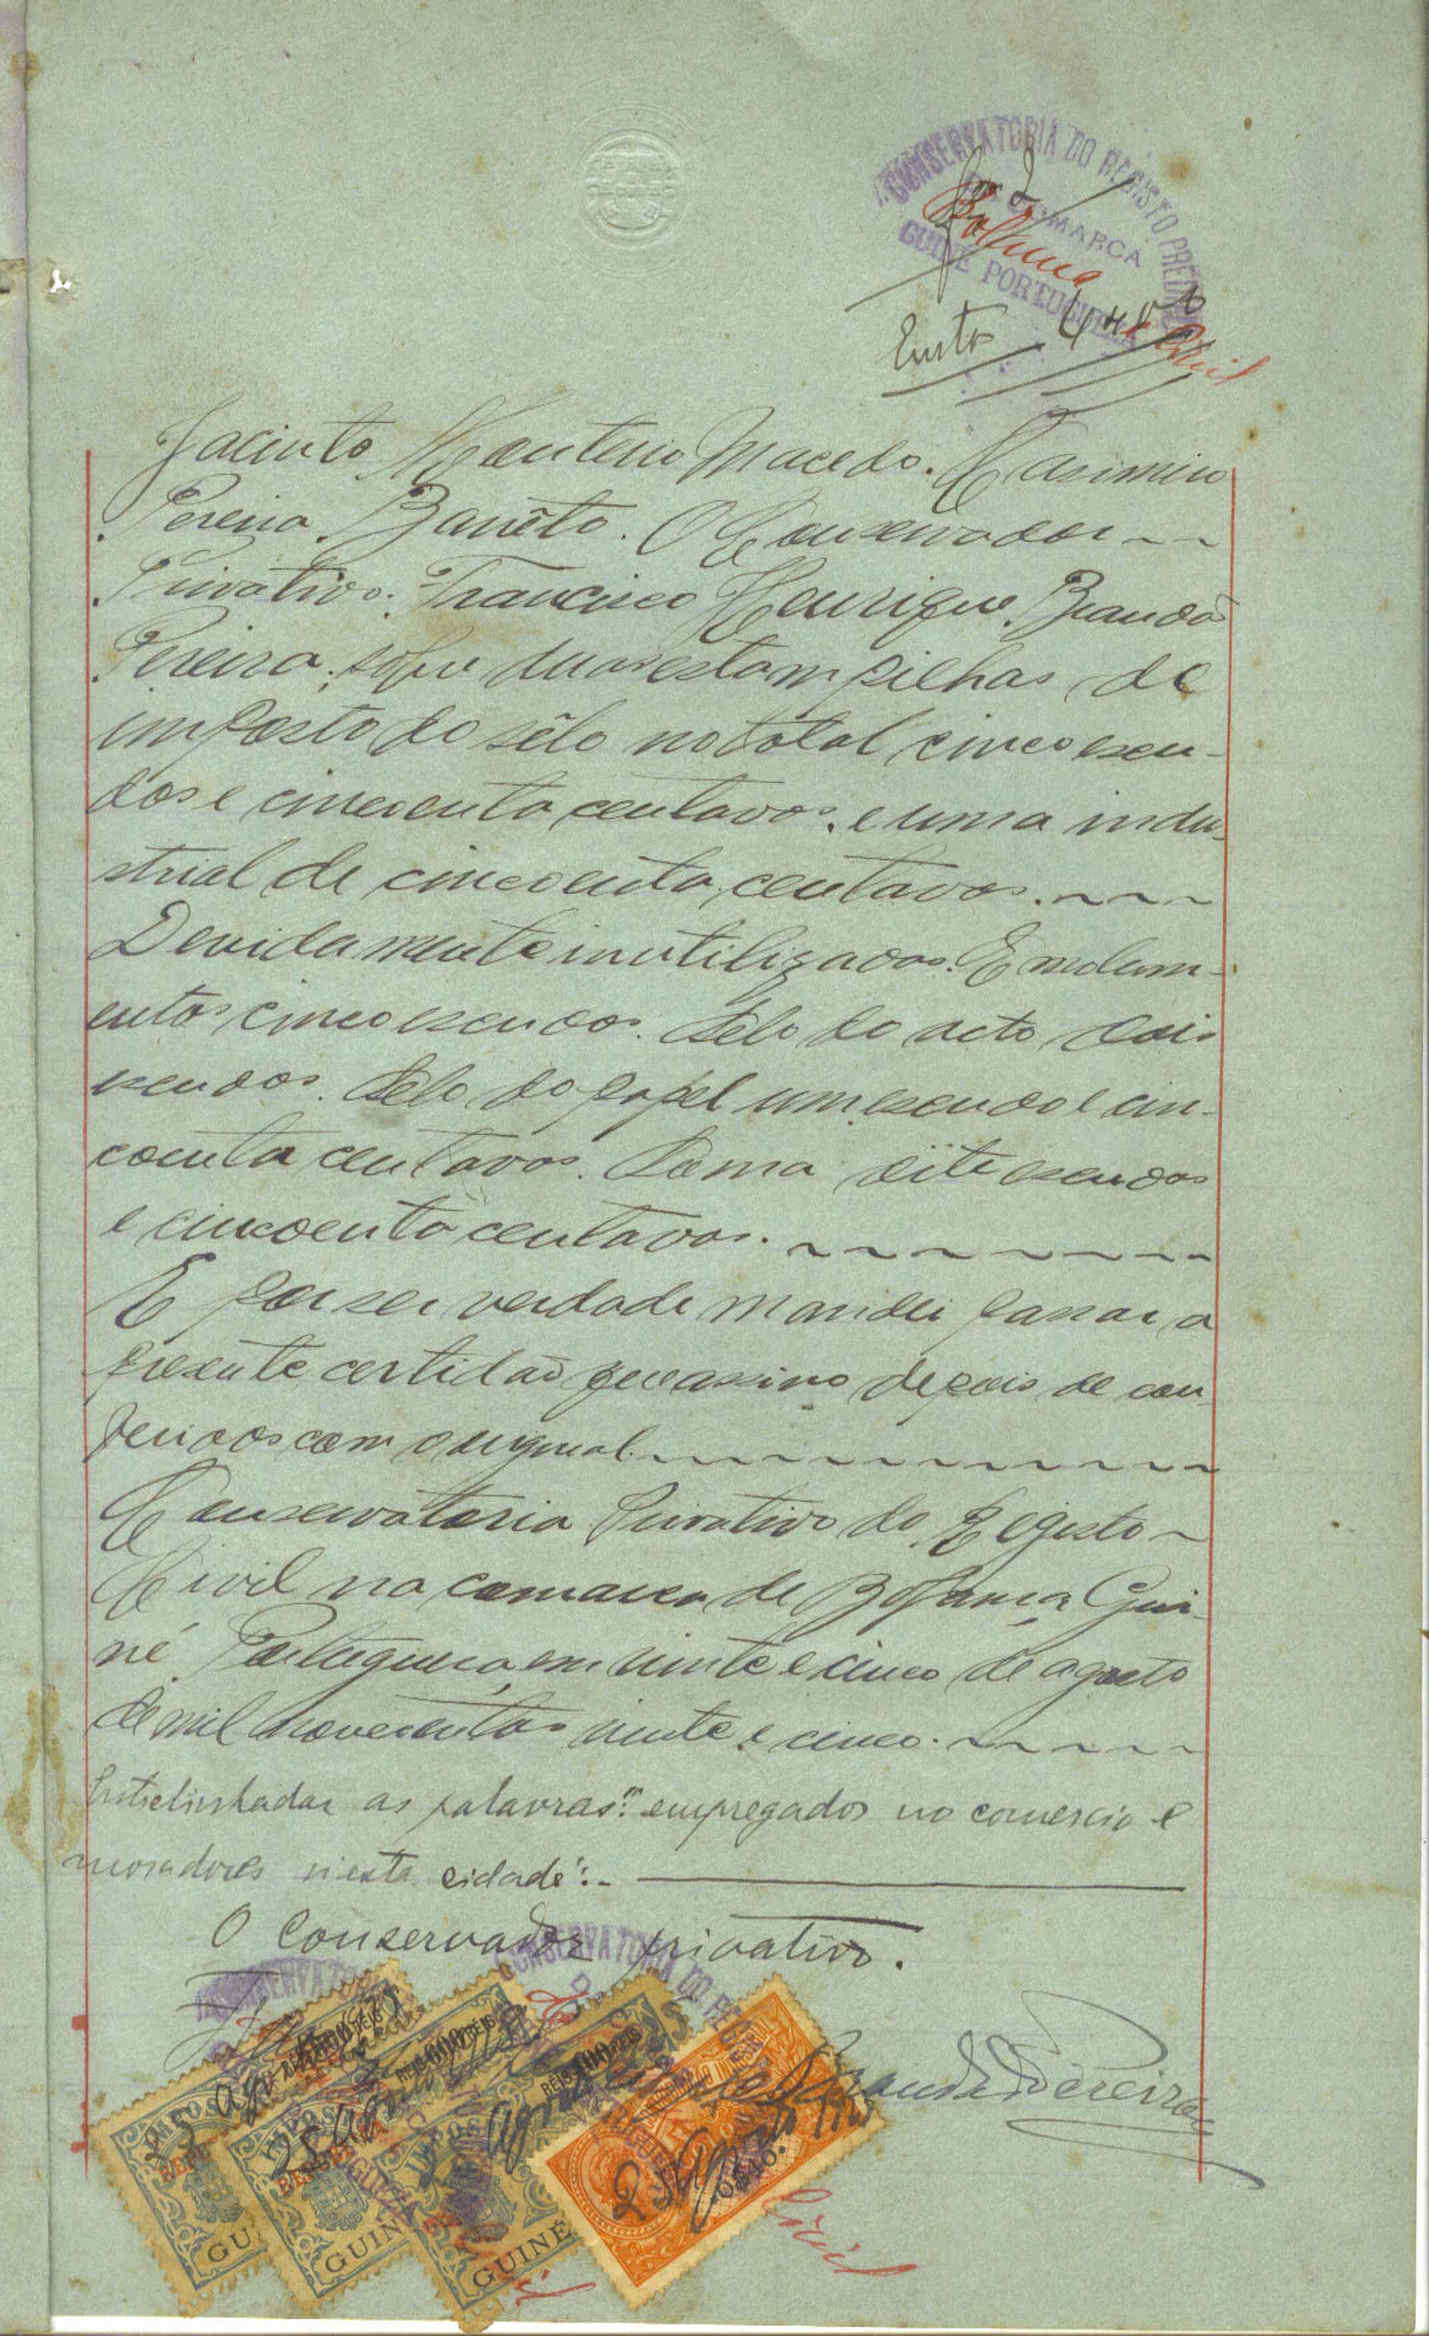 CONSERVATORIA DO REGISTO PREDIAL
COMARCA
Bolama
GUINÉ PORTUGUESA
Civil
Jacinto Monteiro Macedo. Casimiro
Pereira Barrêto. O Conservador
Privativo. Francisco Henrique Brandão
Pereira, sobre duas estampilhas de
imposto do sêlo no total cinco escu-
dos e cincoenta centavos, e uma indu-
strial de cincoenta centavos.
Devidamente inutilizados. Emolum-
entos cinco escudos. Selo do acto dois
escudos. Selo do papel um escudo e cin-
coenta centavos. Soma oito escudos
e cincoenta centavos.
E por ser verdade mandei passar a
presente certidão que assino depois de con-
feridos com o original.
Conservatoria Privativo do Registo
Civil na comarca de Bolama, Gui-
né Portuguesa, em vinte e cinco de agosto
de mil novecentos vinte e cinco.
Entrelinhadas as palavras: "empregados no comercio e
moradores nesta cidade":-
O Conservador privativo.
CONSERVATORIA DO REG
Brandão Pereira
25 Agosto 1925
GUINÉ
GUINÉ
Civil